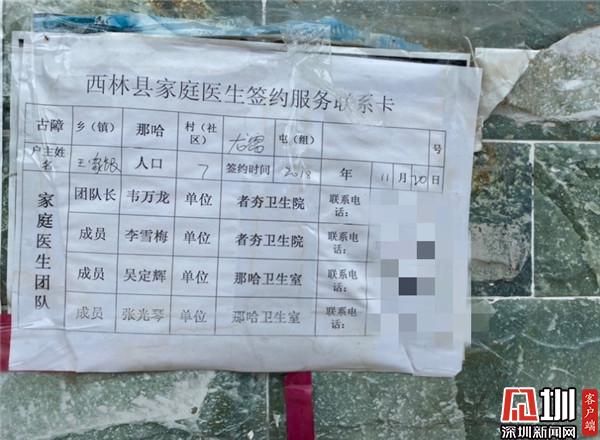 西林县家庭医生签约服务联系卡
古障 乡(镇) 那哈 村(社区) 屯(组) 号
户主姓名 人口 7 签约时间 2018 年 11月20日
家庭医生团队
团队长 韦万龙 单位 者夯卫生院 联系电话：
成员 李雪梅 单位 者夯卫生院 联系电话：
成员 吴定辉 单位 那哈卫生室 联系电话：
成员 张光琴 单位 那哈卫生室 联系电话：
深圳新闻网
客户端